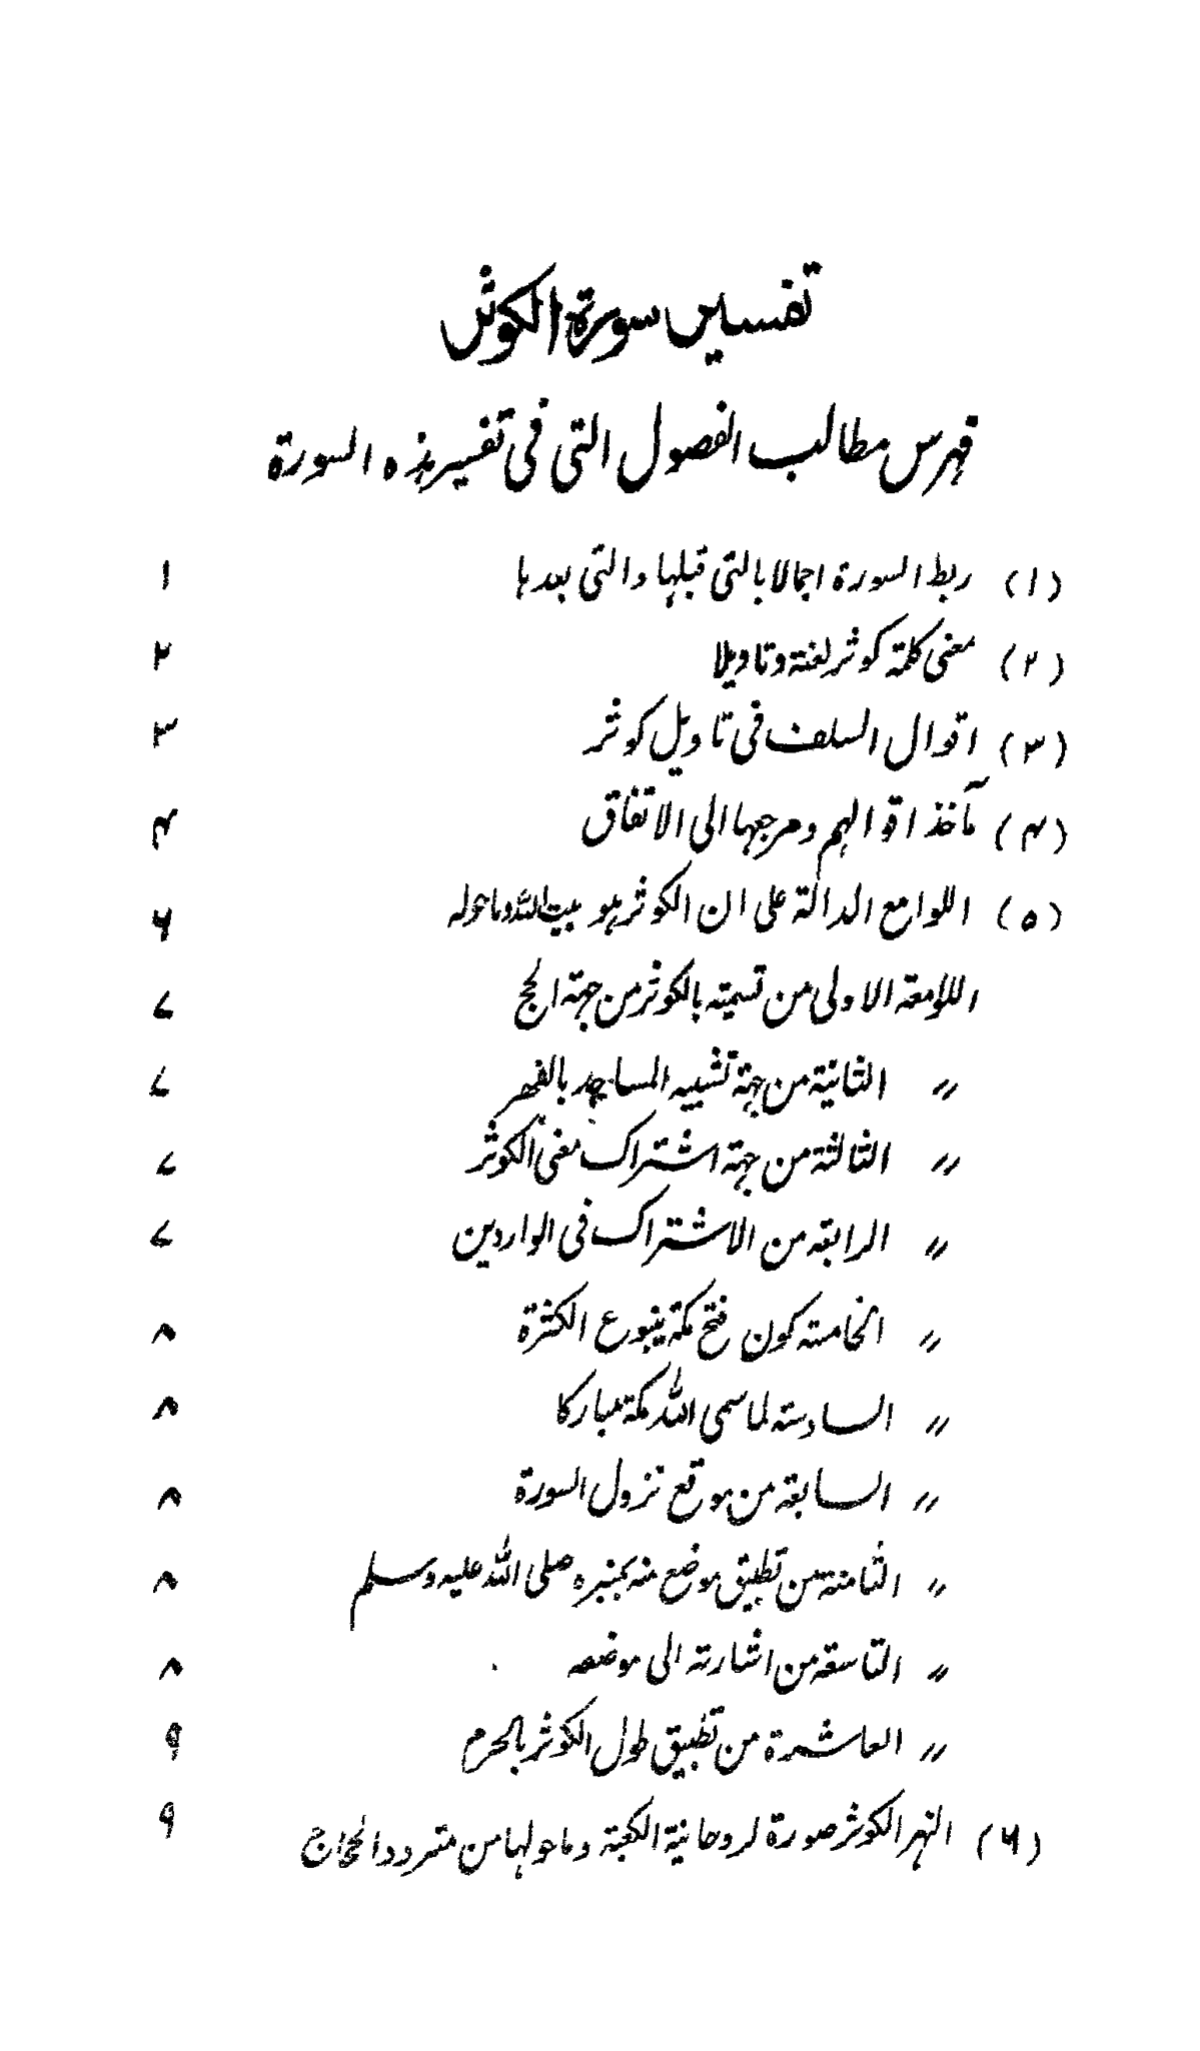 تفسير سورة الكوثر
فهرس مطالب الفصول التى فى تفسير هذه السورة
(۱) ربط السورة اجمالا بالتى قبلها والتى بعدها ۱
(۲) معنى كلمة كوثر لغة وتاويلا ۲
(۳) اقوال السلف فى تاويل كوثر ۳
(۴) مآخذ اقوالهم ومرجعها الى الاتفاق ۴
(۵) اللوامع الدالة على ان الكوثر هو بيت الله وما حوله ۶
اللامعة الاولى من تسميته بالكوثر من جهة الحج ۷
〃 الثانية من جهة تشبيه المساجد بالنهر ۷
〃 الثالثة من جهة اشتراك معنى الكوثر ۷
〃 الرابعة من الاشتراك فى الواردين ۷
〃 الخامسة كون فتح مكة ينبوع الكثرة ۸
〃 السادسة لما سمى الله مكة مباركا ۸
〃 السابعة من موقع نزول السورة ۸
〃 الثامنة من تطبيق موضع منه بمنبره صلى الله عليه وسلم ۸
〃 التاسعة من اشارته الى موضعه ۸
〃 العاشرة من تطبيق طول الكوثر بالحرم ۹
(۶) النهر الكوثر صورة لروحانية الكعبة وما حولها من متردد الحجاج ۹